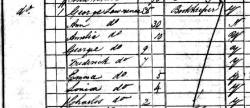 do George Lawrence 35 Bookkeeper N
Ann do 30 N
Amelia do 10
George do 9
Frederick do 7
Emma do 5
Louisa do 4
Charles do 2